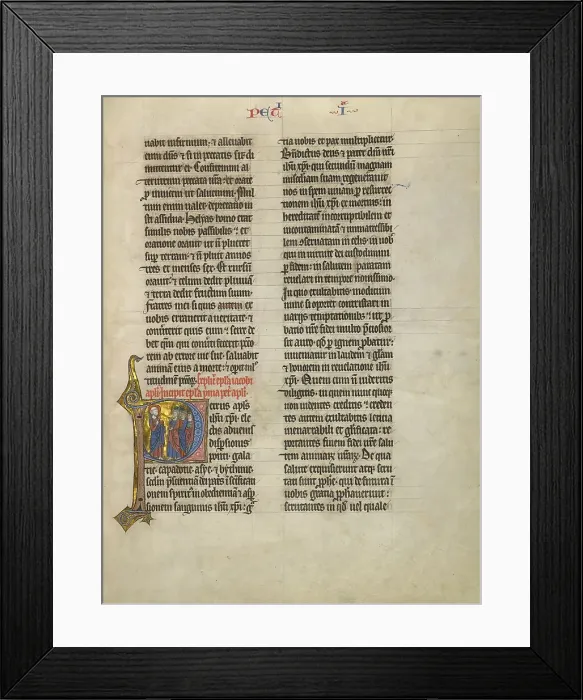 PET I
I
nabit infirmum: ⁊ alleuabit
eum dn̄s ⁊ si in peccatis sit di
mittentur ei. Confitemini al
terutrum peccata ⁊ orate
p̱ inuicem ut saluemini. Mul
tum enim ualet deprecatio iu
sti assidua. Helyas homo erat
similis nobis passibilis ⁊
oratione orauit ut n̄ plueret
sup̱ terram: ⁊ n̄ pluit annos
tres et menses sex. Et rursū
orauit: ⁊ celum dedit pluuiā
⁊ terra dedit fructum suum.
Fratres mei si quis autem ex
uobis errauerit a ueritate: ⁊
quis eum: scire de
bet qm̄ qui conuerti fecerit
rem ab errore uie sue: saluabit
animam eius a morte: ⁊
epl̄a iacobi
apl̄i. incipit epl̄a petri
Petrus apl̄s
ihū xp̄i. ele
ctis aduenis
dispsionis
ponti. gala
tie. capadocie. asye. ⁊ bythinie.
sc̄dm p̄scientiā dei pat̄s ī sc̄ificati
onem sp̄s in obedientiā ⁊ asp̱
sionem sanguinis ihū xp̄i: gr̄
tia uobis et pax multiplicetur.
Bn̄dictus deus ⁊ pater dn̄i nr̄i
ihū xp̄i. qui secundū magnam
misc̄diam suam regenerauit
nos in spem uiuam p̱ resurrec
tionem ihū xp̄i ex mortuis: in
hereditatē incorruptibilem et
incontaminatā ⁊ inmarcessibi
lem ɔseruatam in celis: in uob̄
qui in uirtute dei custodimini
p̱ fidem: in salutem paratam
reuelari in tempore nouissimo.
In quo exultabitis: modicum
nunc si oportet contristari in
uarijs temptationibȝ: ut p̱
batio ur̄e fidei multo p̄ciosior
sit auro. p̱ ignem p̱batur:
inueniatur in laudem ⁊ gl̄am
⁊ honorem in reuelatione ihū
xp̄i. Quem cum n̄ uideritis
diligitis. in quem nunc quoqȝ
non uidentes creditis: creden
tes autem exultabitis leticia
inenarrabili et gl̄ificata: re
portantes finem fidei ur̄e salu
tem animarum De qua
salute exquisierunt atqȝ scru
tati sunt qui de futura ī
uobis gratia p̱phauerunt:
scrutantes in qd̄ uel quale